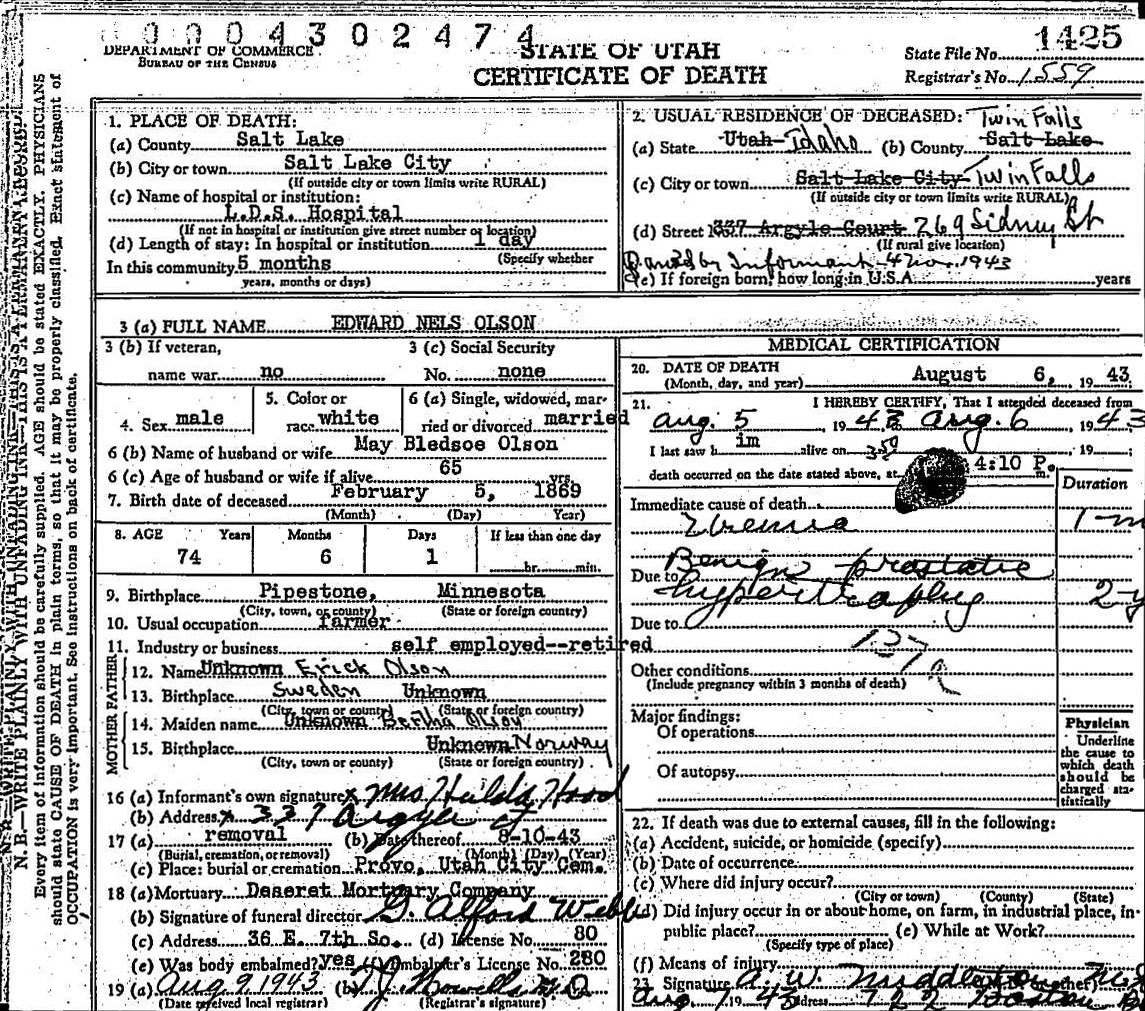 0 0 0 4 3 0 2 4 7 4
DEPARTMENT OF COMMERCE
BUREAU OF THE CENSUS
STATE OF UTAH
CERTIFICATE OF DEATH
State File No. 1425
Registrar's No. 1559
N. B.—WRITE PLAINLY WITH UNFADING INK—THIS IS A PERMANENT RECORD.
Every item of information should be carefully supplied. AGE should be stated EXACTLY. PHYSICIANS
should state CAUSE OF DEATH in plain terms, so that it may be properly classified. Exact statement of
OCCUPATION is very important. See instructions on back of certificate.
1. PLACE OF DEATH:
(a) County Salt Lake
(b) City or town Salt Lake City
(If outside city or town limits write RURAL)
(c) Name of hospital or institution:
L.D.S. Hospital
(If not in hospital or institution give street number or location)
(d) Length of stay: In hospital or institution 1 day
(Specify whether
In this community 5 months
years, months or days)
2. USUAL RESIDENCE OF DECEASED: Twin Falls
(a) State Utah Idaho (b) County Salt Lake
(c) City or town Salt Lake City Twin Falls
(If outside city or town limits write RURAL)
(d) Street 337 Argyle Court 269 Sidney St
(If rural give location)
by Informant 4 Nov. 1943
(e) If foreign born, how long in U.S.A. years
3 (a) FULL NAME EDWARD NELS OLSON
3 (b) If veteran, 3 (c) Social Security
name war no No. none
4. Sex male 5. Color or race white 6 (a) Single, widowed, married or divorced married
6 (b) Name of husband or wife May Bledsoe Olson
6 (c) Age of husband or wife if alive 65 yrs.
7. Birth date of deceased February 5, 1869
(Month) (Day) Year)
8. AGE Years Months Days If less than one day
74 6 1 hr. min.
9. Birthplace Pipestone, Minnesota
(City, town, or county) (State or foreign country)
10. Usual occupation farmer
11. Industry or business self employed--retired
FATHER
12. Name Unknown Erick Olson
13. Birthplace Sweden Unknown
(City, town or county) (State or foreign country)
MOTHER
14. Maiden name Unknown Bertha Olson
15. Birthplace Unknown Norway
(City, town or county) (State or foreign country)
16 (a) Informant's own signature x Mrs Hilda Hood
(b) Address x 337 Argyle Ct
17 (a) removal (b) Date thereof 8-10-43
(Burial, cremation, or removal) (Month) (Day) (Year)
(c) Place: burial or cremation Provo, Utah City Cem.
18 (a) Mortuary Deseret Mortuary Company
(b) Signature of funeral director G. Alford Webb
(c) Address 36 E. 7th So. (d) License No. 80
(e) Was body embalmed? yes (f) Embalmer's License No. 280
19 (a) Aug 9 1943 (b) T J Howells M D
(Date received local registrar) (Registrar's signature)
MEDICAL CERTIFICATION
20. DATE OF DEATH
(Month, day, and year) August 6, 19 43
21. I HEREBY CERTIFY, That I attended deceased from
Aug. 5, 19 43 Aug. 6, 19 43
I last saw h im alive on 19
death occurred on the date stated above, at 4:10 P. m.
Duration
Immediate cause of death
Uremia 1-m
Due to Benign prostatic
hypertrophy 2-y
Due to
137
Other conditions
(Include pregnancy within 3 months of death)
Major findings:
Of operations
Of autopsy
Physician
Underline
the cause to
which death
should be
charged sta-
tistically
22. If death was due to external causes, fill in the following:
(a) Accident, suicide, or homicide (specify)
(b) Date of occurrence
(c) Where did injury occur?
(City or town) (County) (State)
(d) Did injury occur in or about home, on farm, in industrial place, in
public place? (e) While at Work?
(Specify type of place)
(f) Means of injury
23. Signature A. W. Middleton
Aug. 19 43 Address 722 Boston